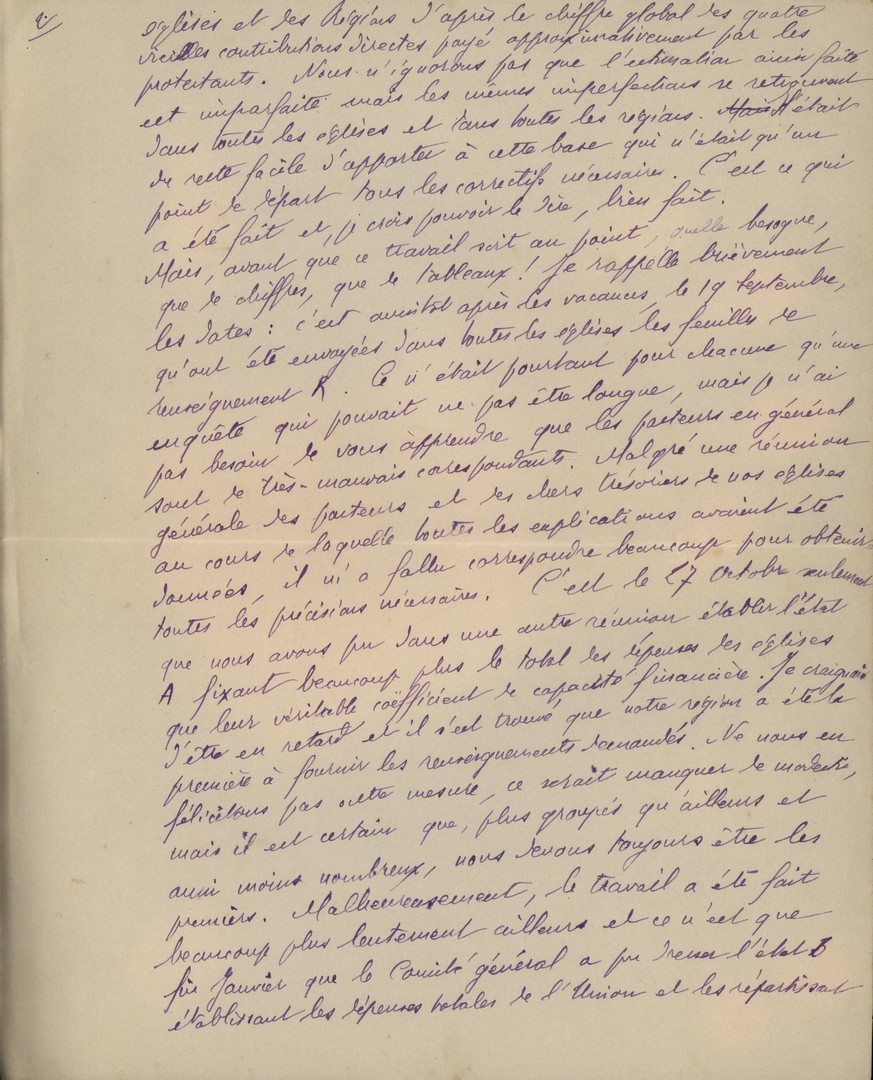 2/
églises et des Régions d'après le chiffre global des quatre
vieilles contributions directes payé approximativement par les
protestants. Nous n'ignorons pas que l'estimation ainsi faite
est imparfaite mais les mêmes imperfections se retrouvent
dans toutes les eglises et dans toutes les regions. Mais Il était
du reste facile d'apporter à cette base qui n'était qu'un
point de départ tous les correctifs nécessaires. C'est ce qui
a été fait et, je crois pouvoir le dire, bien fait.
Mais, avant que ce travail soit au point, quelle besogne,
que de chiffres, que de tableaux ! Je rappelle brièvement
les dates : c'est aussitot après les vacances, le 19 Septembre,
qu'ont été envoyées dans toutes les eglises les feuilles de
renseignement R. Ce n'était pourtant pour chacune qu'une
enquête qui pouvait ne pas être longue, mais je n'ai
pas besoin de vous apprendre que les pasteurs en général
sont de très-mauvais correspondants. Malgré une réunion
générale des pasteurs et des chers trésoriers de nos eglises
au cours de laquelle toutes les explications avaient été
données, il m'a fallu correspondre beaucoup pour obtenir
toutes les précisions nécessaires. C'est le 27 Octobre seulement
que nous avons pu dans une autre réunion établir l'état
A fixant beaucoup plus le total des dépenses des eglises
que leur véritable coëfficient de capacité financière. Je craignais
d'être en retard et il s'est trouvé que notre region a été la
première à fournir les renseignements demandés. Ne nous en
félicitons pas outre mesure, ce serait manquer de modestie,
mais il est certain que, plus groupés qu'ailleurs et
aussi moins nombreux, nous devons toujours être les
premiers. Malheureusement, le travail a été fait
beaucoup plus lentement ailleurs et ce n'est que
fin Janvier que le Comité général a pu dresser l'état B
établissant les dépenses totales de l'Union et les répartissant